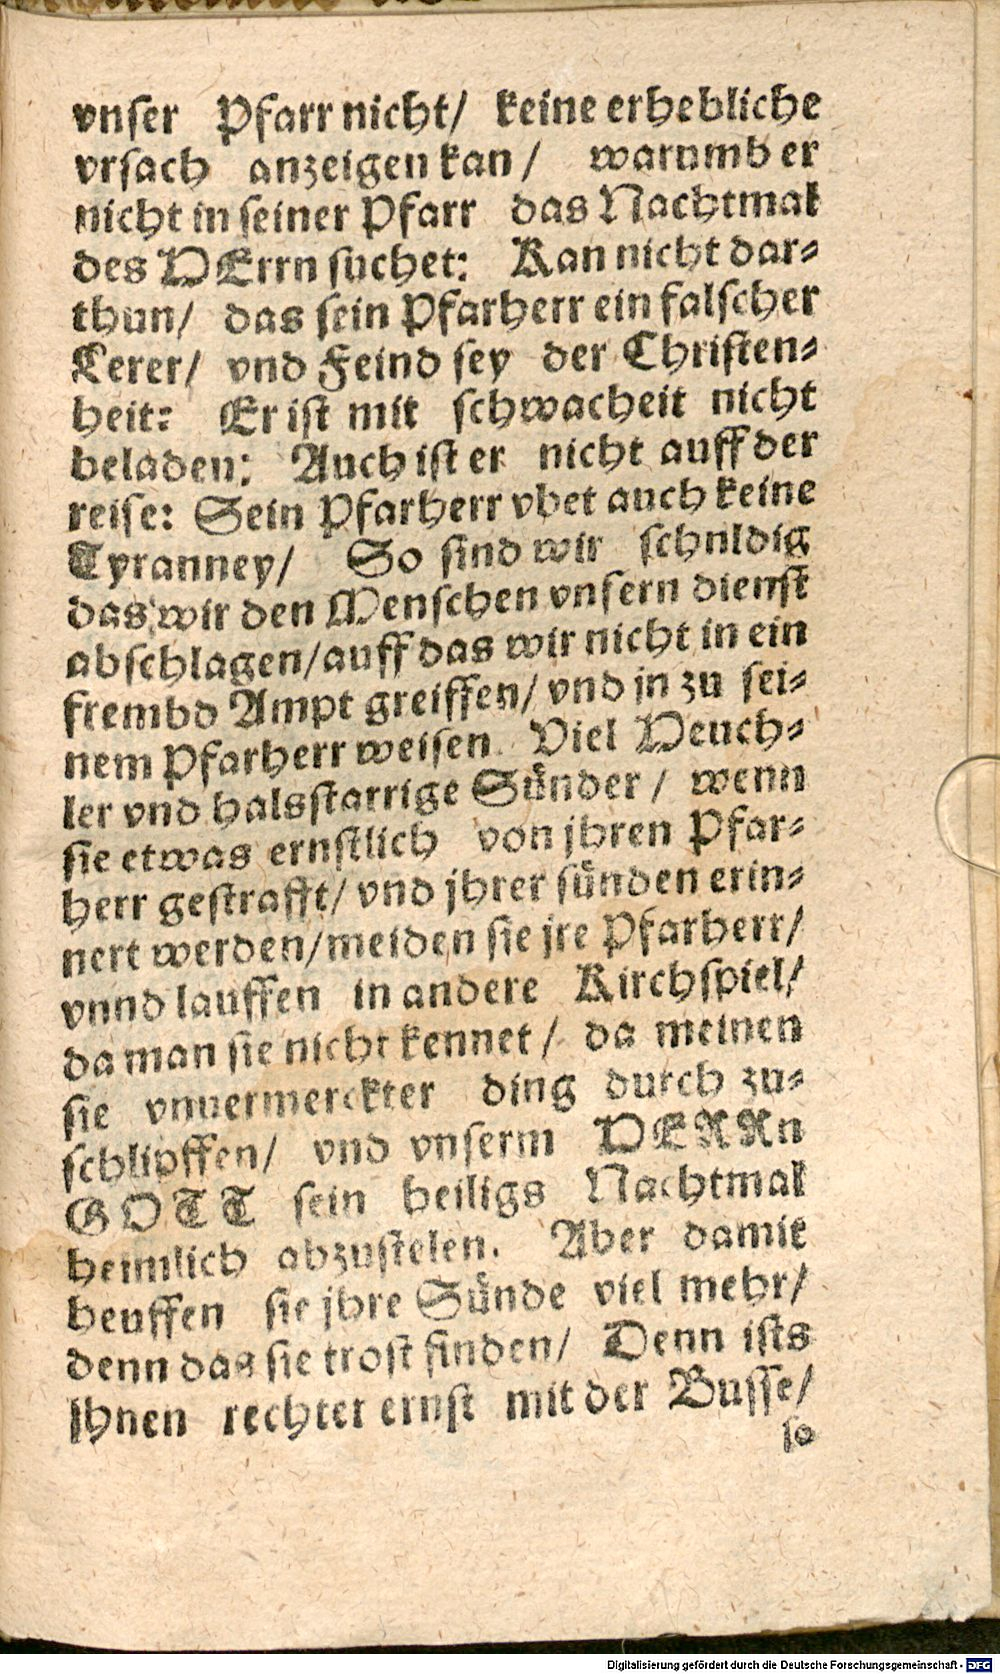 vnser Pfarr nicht/ keine erhebliche
vrsach anzeigen kan/ warumb er
nicht in seiner Pfarr das Nachtmal
des HErrn suchet: Kan nicht dar-
thun/ das sein Pfarherr ein falscher
Lerer/ vnd Feind sey der Christen-
heit: Er ist mit schwacheit nicht
beladen: Auch ist er nicht auff der
reise: Sein Pfarherr vbet auch keine
Tyranney/ So sind wir schuldig
das wir den Menschen vnsern dienst
abschlagen/ auff das wir nicht in ein
frembd Ampt greiffen/ vnd jn zu sei-
nem Pfarherr weisen. Viel Heuch-
ler vnd halsstarrige Sünder/ wenn
sie etwas ernstlich von jhren Pfar-
herr gestrafft/ vnd jhrer sünden erin-
nert werden/ meiden sie jre Pfarherr/
vnnd lauffen in andere Kirchspiel/
da man sie nicht kennet/ da meinen
sie vnuermerckter ding durch zu-
schlipffen/ vnd vnserm HERRn
GOTT sein heiligs Nachtmal
heimlich abzustelen. Aber damit
heuffen sie jhre Sünde viel mehr/
denn das sie trost finden/ Denn ists
jhnen rechter ernst mit der Busse/
so
Digitalisierung gefördert durch die Deutsche Forschungsgemeinschaft - DFG